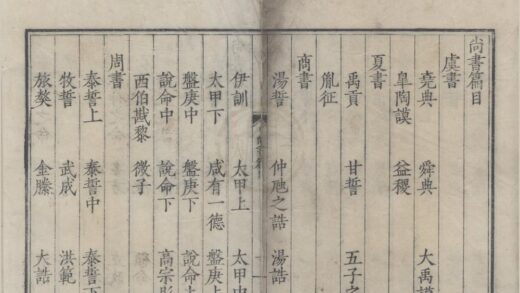 尚書篇目
虞書
堯典 舜典 大禹謨
皐陶謨 益稷
夏書
禹貢 甘誓 五子之
胤征
商書
湯誓 仲虺之誥 湯誥
伊訓 太甲上 太甲中
太甲下 咸有一德 盤庚上
盤庚中 盤庚下 說命
說命中 說命下 高宗肜
西伯戡黎 微子
周書
泰誓上 泰誓中 泰誓下
牧誓 武成 洪範
旅獒 金縢 大誥